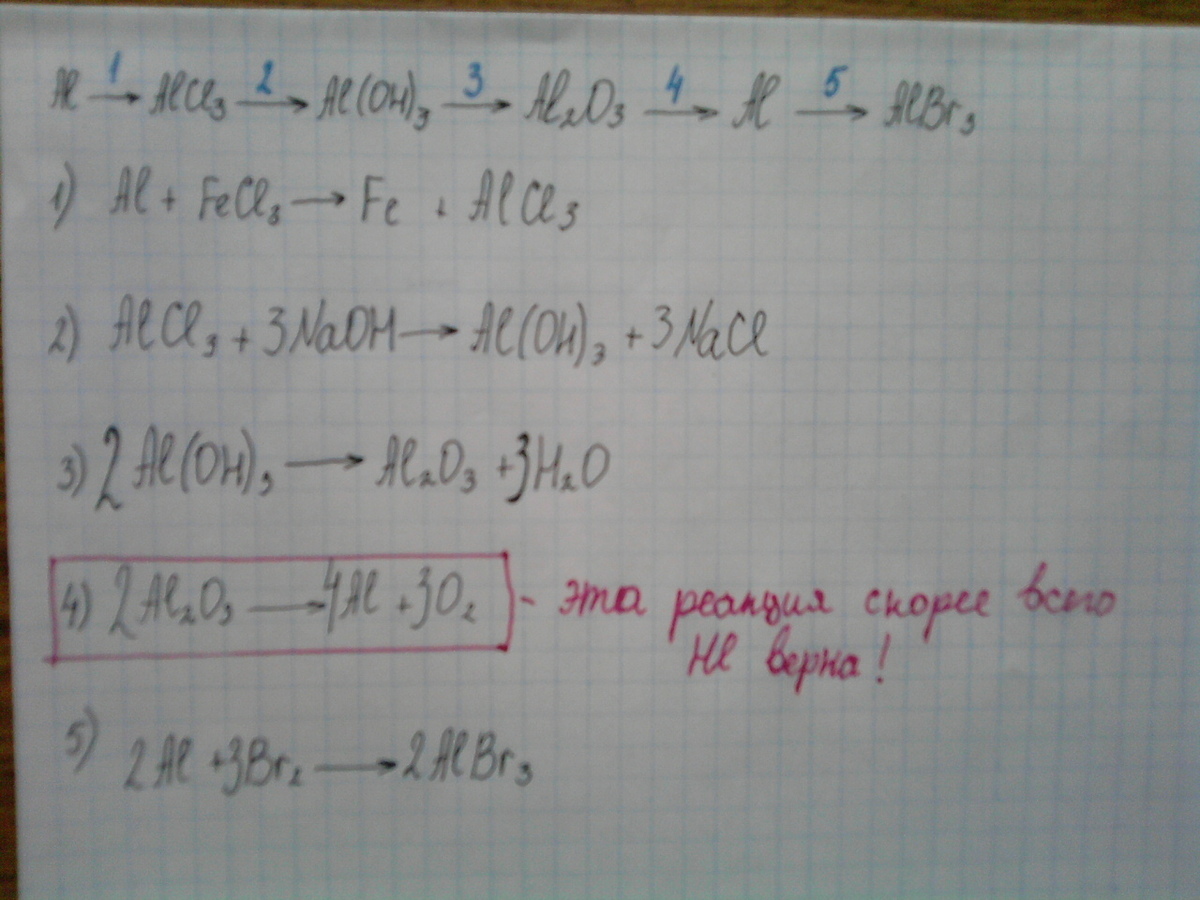 Al 1→ AlCl₃ 2→ Al(OH)₃ 3→ Al₂O₃ 4→ Al 5→ AlBr₃
1) Al + FeCl₃ → Fe + AlCl₃
2) AlCl₃ + 3NaOH → Al(OH)₃ + 3NaCl
3) 2Al(OH)₃ → Al₂O₃ + 3H₂O
4) 2Al₂O₃ → 4Al + 3O₂ - эта реакция скорее всего
не верна!
5) 2Al + 3Br₂ → 2AlBr₃